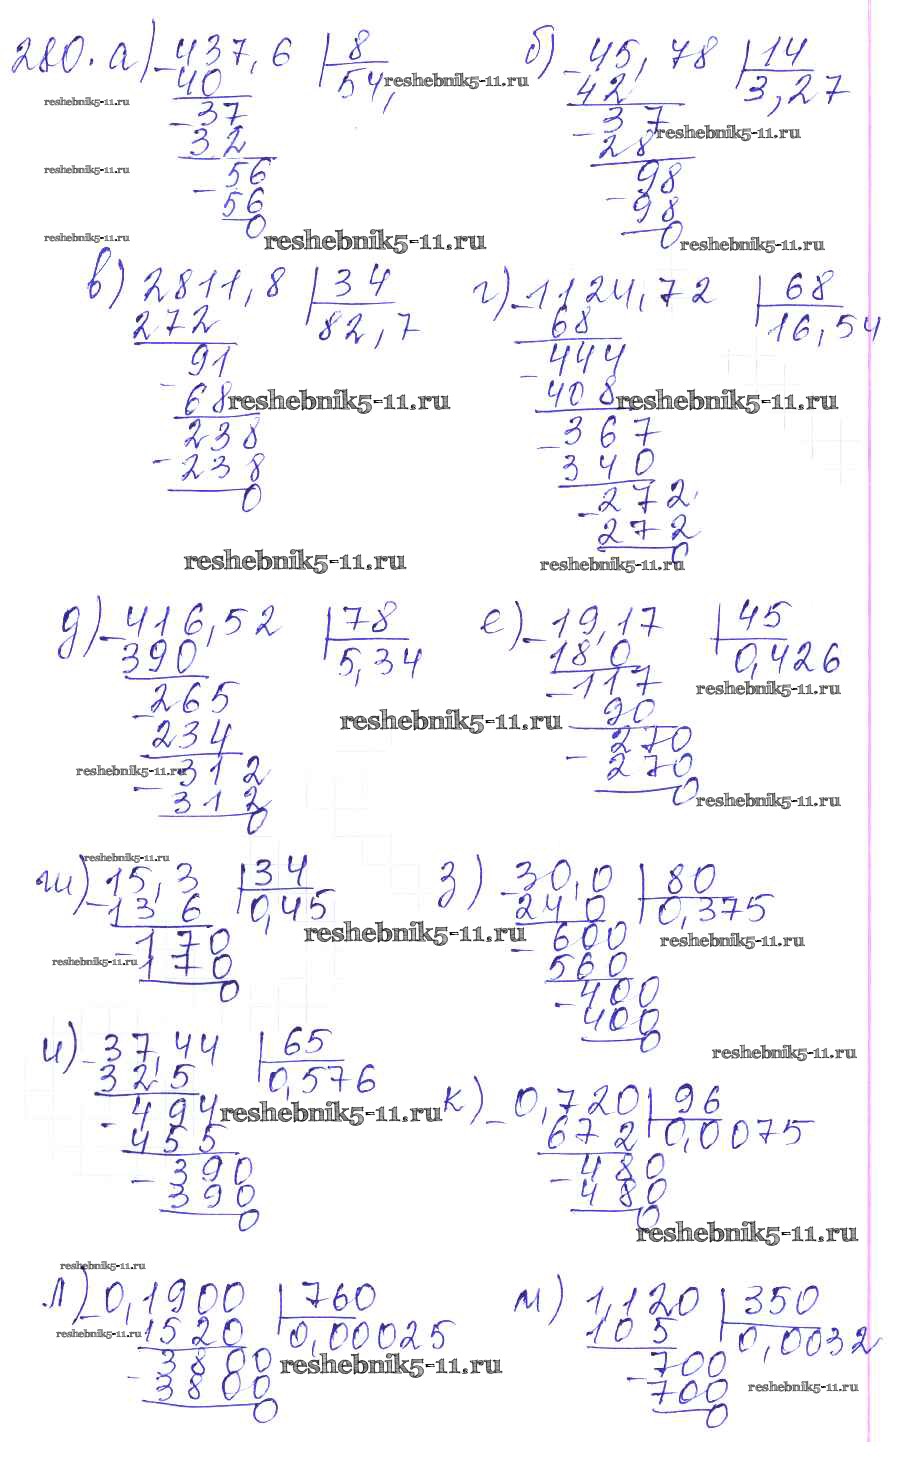 280. а) 437,6 | 8
40 54, reshebnik5-11.ru
reshebnik5-11.ru
37
32
reshebnik5-11.ru
56
56
0
reshebnik5-11.ru
reshebnik5-11.ru
б) 45,78 | 14
42 3,27
37
reshebnik5-11.ru
28
98
98
0
reshebnik5-11.ru
в) 2811,8 | 34
272 82,7
91
68
reshebnik5-11.ru
238
238
0
reshebnik5-11.ru
г) 1124,72 | 68
68 16,54
444
408
reshebnik5-11.ru
367
340
272
272
0
reshebnik5-11.ru
д) 416,52 | 78
390 5,34
265
reshebnik5-11.ru
234
reshebnik5-11.ru
312
312
0
е) 19,17 | 45
180 0,426
117
reshebnik5-11.ru
90
270
270
0
reshebnik5-11.ru
reshebnik5-11.ru
ж) 15,3 | 34
136 0,45
reshebnik5-11.ru
170
reshebnik5-11.ru
170
0
з) 30,0 | 80
240 0,375
600
reshebnik5-11.ru
560
400
400
0
reshebnik5-11.ru
и) 37,44 | 65
325 0,576
494
reshebnik5-11.ru
455
390
390
0
к) 0,720 | 96
672 0,0075
480
480
0
reshebnik5-11.ru
reshebnik5-11.ru
л) 0,1900 | 760
1520 0,00025
reshebnik5-11.ru
3800
reshebnik5-11.ru
3800
0
м) 1,120 | 350
105 0,0032
700
reshebnik5-11.ru
700
0